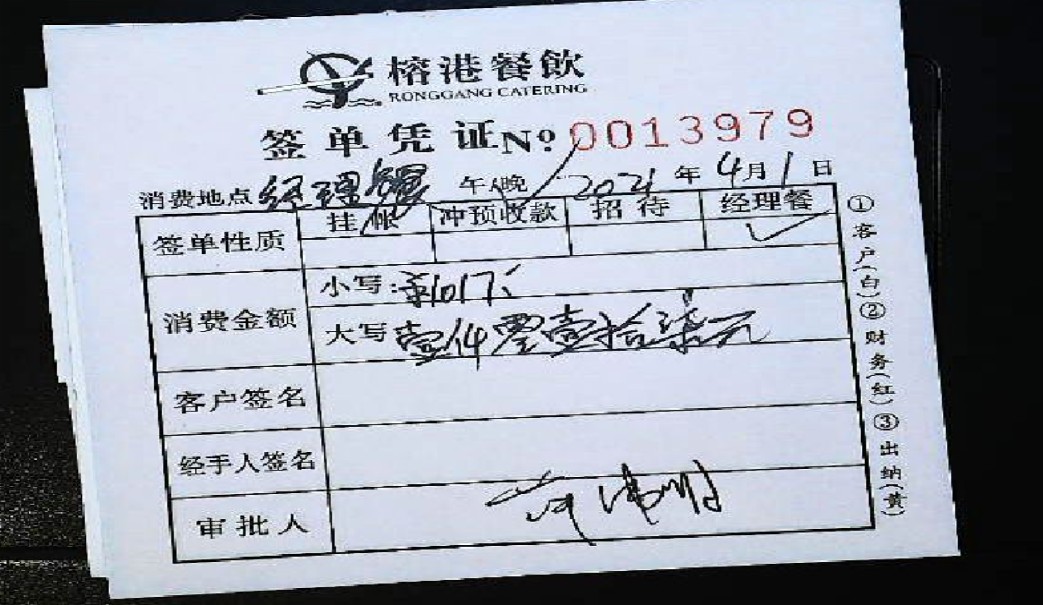 榕港餐飲
RONGGANG CATERING
签单凭证 Nº 0013979
消费地点 经理餐 午/晚 2021年4月1日
签单性质 挂帐 冲预收款 招待 经理餐
✓
消费金额 小写:1017
大写 壹仟零壹拾柒元
客户签名
经手人签名
审批人
①客户(白)②财务(红)③出纳(黄)